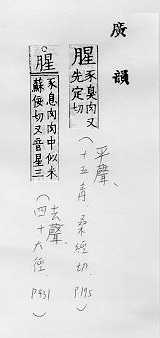 廣韻
腥 豕臭肉又
先定切
(平聲、
十五青 桑經切.
P195
)
腥 豕息肉肉中似米
蘇佞切又音星三
(去聲、
四十六徑.
P431
)